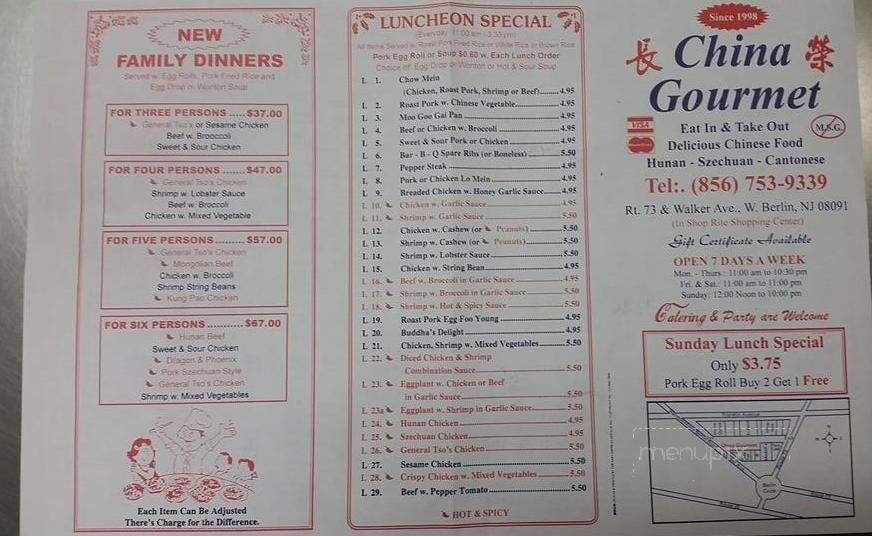 NEW
FAMILY DINNERS
Served w. Egg Rolls, Pork Fried Rice and
Egg Drop or Wonton Soup
FOR THREE PERSONS ..... $37.00
General Tso's or Sesame Chicken
Beef w. Broccoli
Sweet & Sour Chicken
FOR FOUR PERSONS ....... $47.00
General Tso's Chicken
Shrimp w. Lobster Sauce
Beef w. Broccoli
Chicken w. Mixed Vegetable
FOR FIVE PERSONS ........ $57.00
General Tso's Chicken
Mongolian Beef
Chicken w. Broccoli
Shrimp String Beans
Kung Pao Chicken
FOR SIX PERSONS .......... $67.00
Hunan Beef
Sweet & Sour Chicken
Dragon & Phoenix
Pork Szechuan Style
General Tso's Chicken
Shrimp w. Mixed Vegetables
Each Item Can Be Adjusted
There's Charge for the Difference.
LUNCHEON SPECIAL
(Everyday 11:00 am - 3:30 pm)
All Items Served w. Roast Pork Fried Rice or White Rice or Brown Rice
Pork Egg Roll or Soup $0.80 w. Each Lunch Order
Choice of Egg Drop or Wonton or Hot & Sour Soup
L 1. Chow Mein
(Chicken, Roast Pork, Shrimp or Beef) 4.95
L 2. Roast Pork w. Chinese Vegetable 4.95
L 3. Moo Goo Gai Pan 4.95
L 4. Beef or Chicken w. Broccoli 4.95
L 5. Sweet & Sour Pork or Chicken 4.95
L 6. Bar - B - Q Spare Ribs (or Boneless) 5.50
L 7. Pepper Steak 4.95
L 8. Pork or Chicken Lo Mein 4.95
L 9. Breaded Chicken w. Honey Garlic Sauce 4.95
L 10. Chicken w. Garlic Sauce 4.95
L 11. Shrimp w. Garlic Sauce 5.50
L 12. Chicken w. Cashew (or Peanuts) 5.50
L 13. Shrimp w. Cashew (or Peanuts) 5.50
L 14. Shrimp w. Lobster Sauce 5.50
L 15. Chicken w. String Bean 4.95
L 16. Beef w. Broccoli in Garlic Sauce 4.95
L 17. Shrimp w. Broccoli in Garlic Sauce 5.50
L 18. Shrimp w. Hot & Spicy Sauce 5.50
L 19. Roast Pork Egg Foo Young 4.95
L 20. Buddha's Delight 4.95
L 21. Chicken, Shrimp w. Mixed Vegetables 5.50
L 22. Diced Chicken & Shrimp
Combination Sauce 5.50
L 23. Eggplant w. Chicken or Beef
in Garlic Sauce 5.50
L 23a Eggplant w. Shrimp in Garlic Sauce 5.50
L 24. Hunan Chicken 4.95
L 25. Szechuan Chicken 4.95
L 26. General Tso's Chicken 5.50
L 27. Sesame Chicken 5.50
L 28. Crispy Chicken w. Mixed Vegetables 5.50
L 29. Beef w. Pepper Tomato 5.50
HOT & SPICY
Since 1998
長 China 榮
Gourmet
VISA
M.S.G.
Eat In & Take Out
Delicious Chinese Food
Hunan - Szechuan - Cantonese
Tel:. (856) 753-9339
Rt. 73 & Walker Ave., W. Berlin, NJ 08091
(In Shop Rite Shopping Center)
Gift Certificate Available
OPEN 7 DAYS A WEEK
Mon. - Thurs.: 11:00 am to 10:30 pm
Fri. & Sat.: 11:00 am to 11:00 pm
Sunday: 12:00 Noon to 10:00 pm
Catering & Party are Welcome
Sunday Lunch Special
Only $3.75
Pork Egg Roll Buy 2 Get 1 Free
Franklin Avenue
China Gourmet
Berlin
Circle